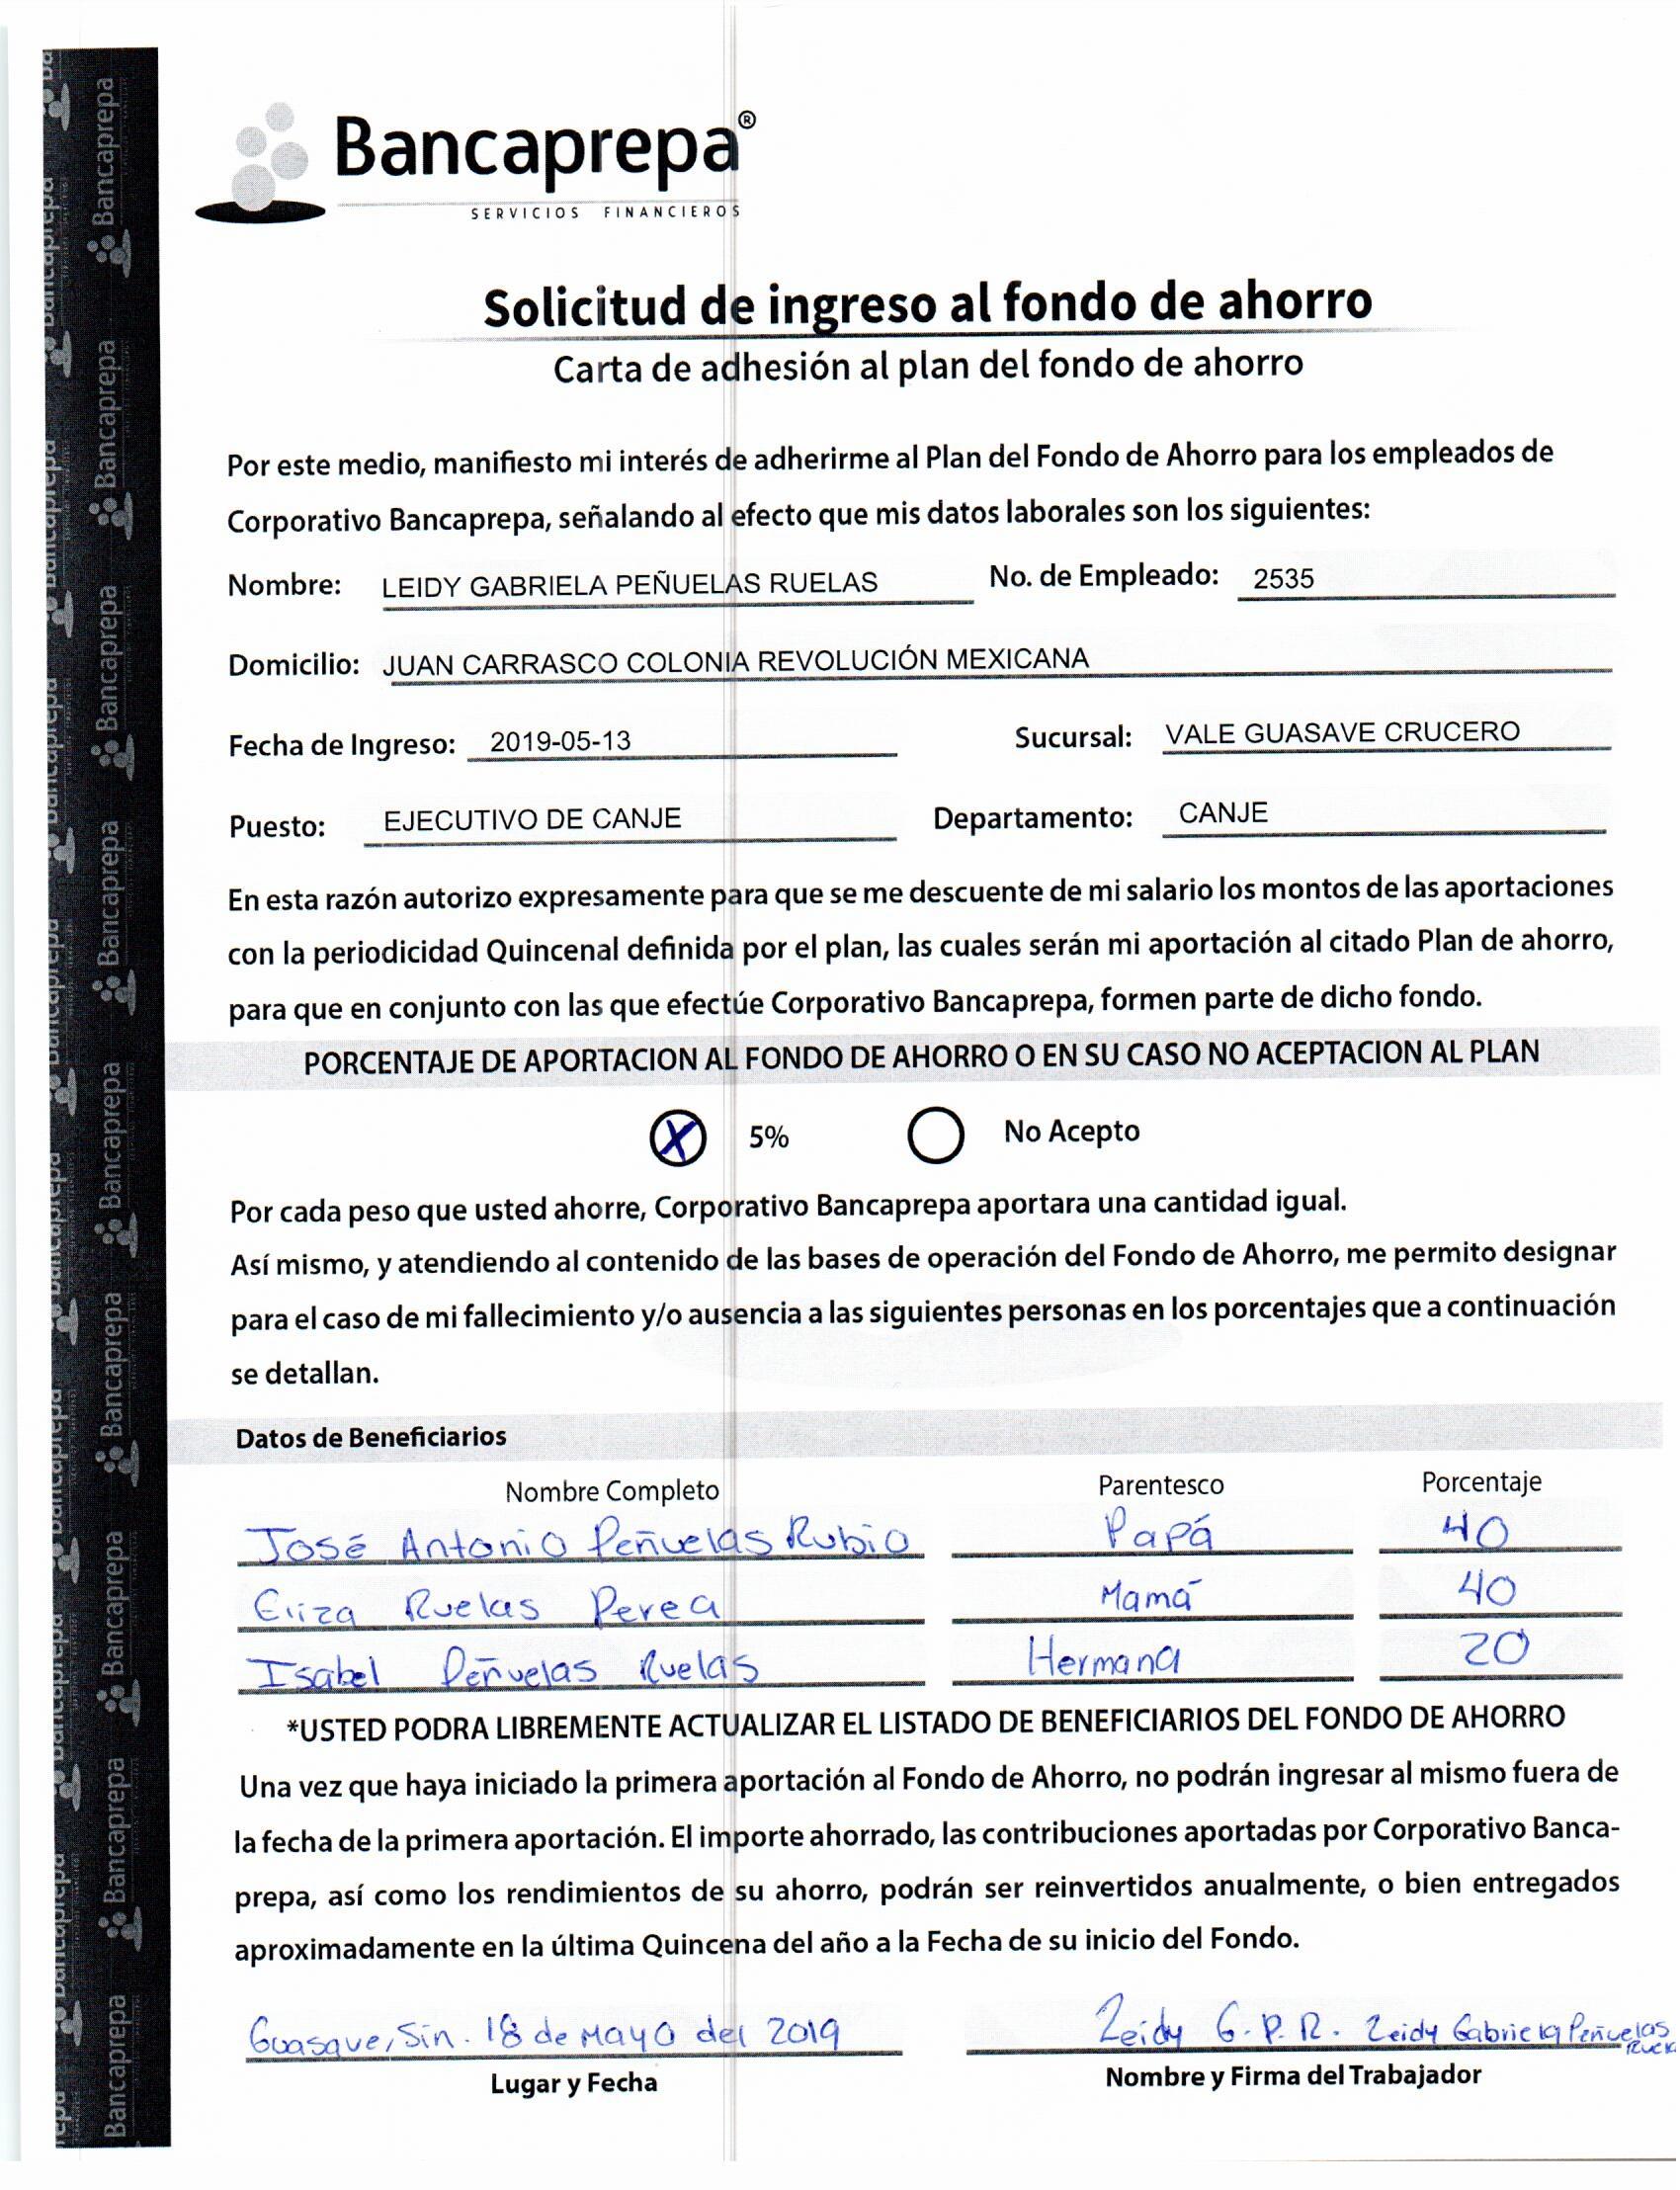 Bancaprepa®
SERVICIOS FINANCIEROS
Solicitud de ingreso al fondo de ahorro
Carta de adhesión al plan del fondo de ahorro
Por este medio, manifiesto mi interés de adherirme al Plan del Fondo de Ahorro para los empleados de
Corporativo Bancaprepa, señalando al efecto que mis datos laborales son los siguientes:
Nombre: LEIDY GABRIELA PEÑUELAS RUELAS No. de Empleado: 2535
Domicilio: JUAN CARRASCO COLONIA REVOLUCIÓN MEXICANA
Fecha de Ingreso: 2019-05-13 Sucursal: VALE GUASAVE CRUCERO
Puesto: EJECUTIVO DE CANJE Departamento: CANJE
En esta razón autorizo expresamente para que se me descuente de mi salario los montos de las aportaciones
con la periodicidad Quincenal definida por el plan, las cuales serán mi aportación al citado Plan de ahorro,
para que en conjunto con las que efectúe Corporativo Bancaprepa, formen parte de dicho fondo.
PORCENTAJE DE APORTACION AL FONDO DE AHORRO O EN SU CASO NO ACEPTACION AL PLAN
X 5% No Acepto
Por cada peso que usted ahorre, Corporativo Bancaprepa aportara una cantidad igual.
Así mismo, y atendiendo al contenido de las bases de operación del Fondo de Ahorro, me permito designar
para el caso de mi fallecimiento y/o ausencia a las siguientes personas en los porcentajes que a continuación
se detallan.
Datos de Beneficiarios
Nombre Completo Parentesco Porcentaje
José Antonio Peñuelas Rubio Papá 40
Eliza Ruelas Perea Mamá 40
Isabel Peñuelas Ruelas Hermana 20
*USTED PODRA LIBREMENTE ACTUALIZAR EL LISTADO DE BENEFICIARIOS DEL FONDO DE AHORRO
Una vez que haya iniciado la primera aportación al Fondo de Ahorro, no podrán ingresar al mismo fuera de
la fecha de la primera aportación. El importe ahorrado, las contribuciones aportadas por Corporativo Banca-
prepa, así como los rendimientos de su ahorro, podrán ser reinvertidos anualmente, o bien entregados
aproximadamente en la última Quincena del año a la Fecha de su inicio del Fondo.
Guasave, Sin. 18 de Mayo del 2019 Leidy G. P. R. Leidy Gabriela Peñuelas
Lugar y Fecha Nombre y Firma del Trabajador